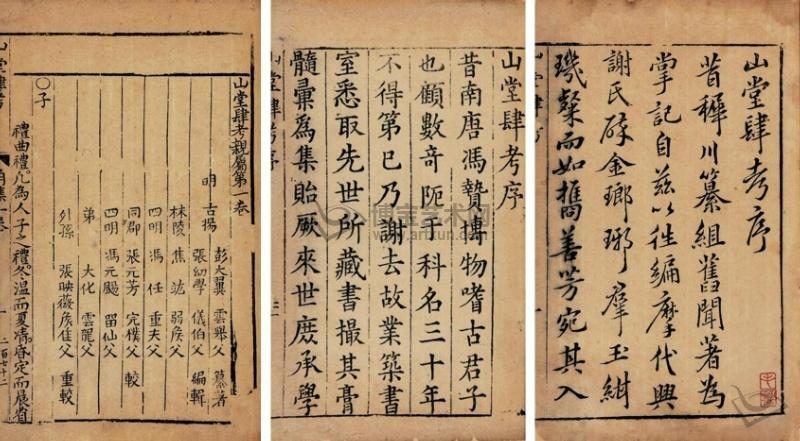 山堂肆考序
昔稗川纂組舊聞著為
掌記自茲以往編摩代興
謝氏碎金瑯琊羣玉紺
珠粲而如攜善芳宛其入
山堂肆考序
昔南唐馮贄博物嗜古君子
也顧數奇阨于科名三十年
不得第已乃謝去故業築書
室悉取先世所藏書撮其膏
髓彚爲集貽厥來世庶承學
山堂肆考序
山堂肆考親屬第一卷
明 古揚 彭大翼 雲舉父 纂著
張㓜學 儀伯父 編輯
秣陵 焦竑 弱矦父
四明 馮任 重夫父
同郡 張元芳 完樸父 較
四明 馮元颺 留仙父
弟 大化 雲龍父
外孫 張映薇 矦佳父 重較
○子
禮曲禮凡為人子之禮冬溫而夏凊昏定而晨省
山堂肆考
角集一卷
一
二百七十二
博宝艺术网